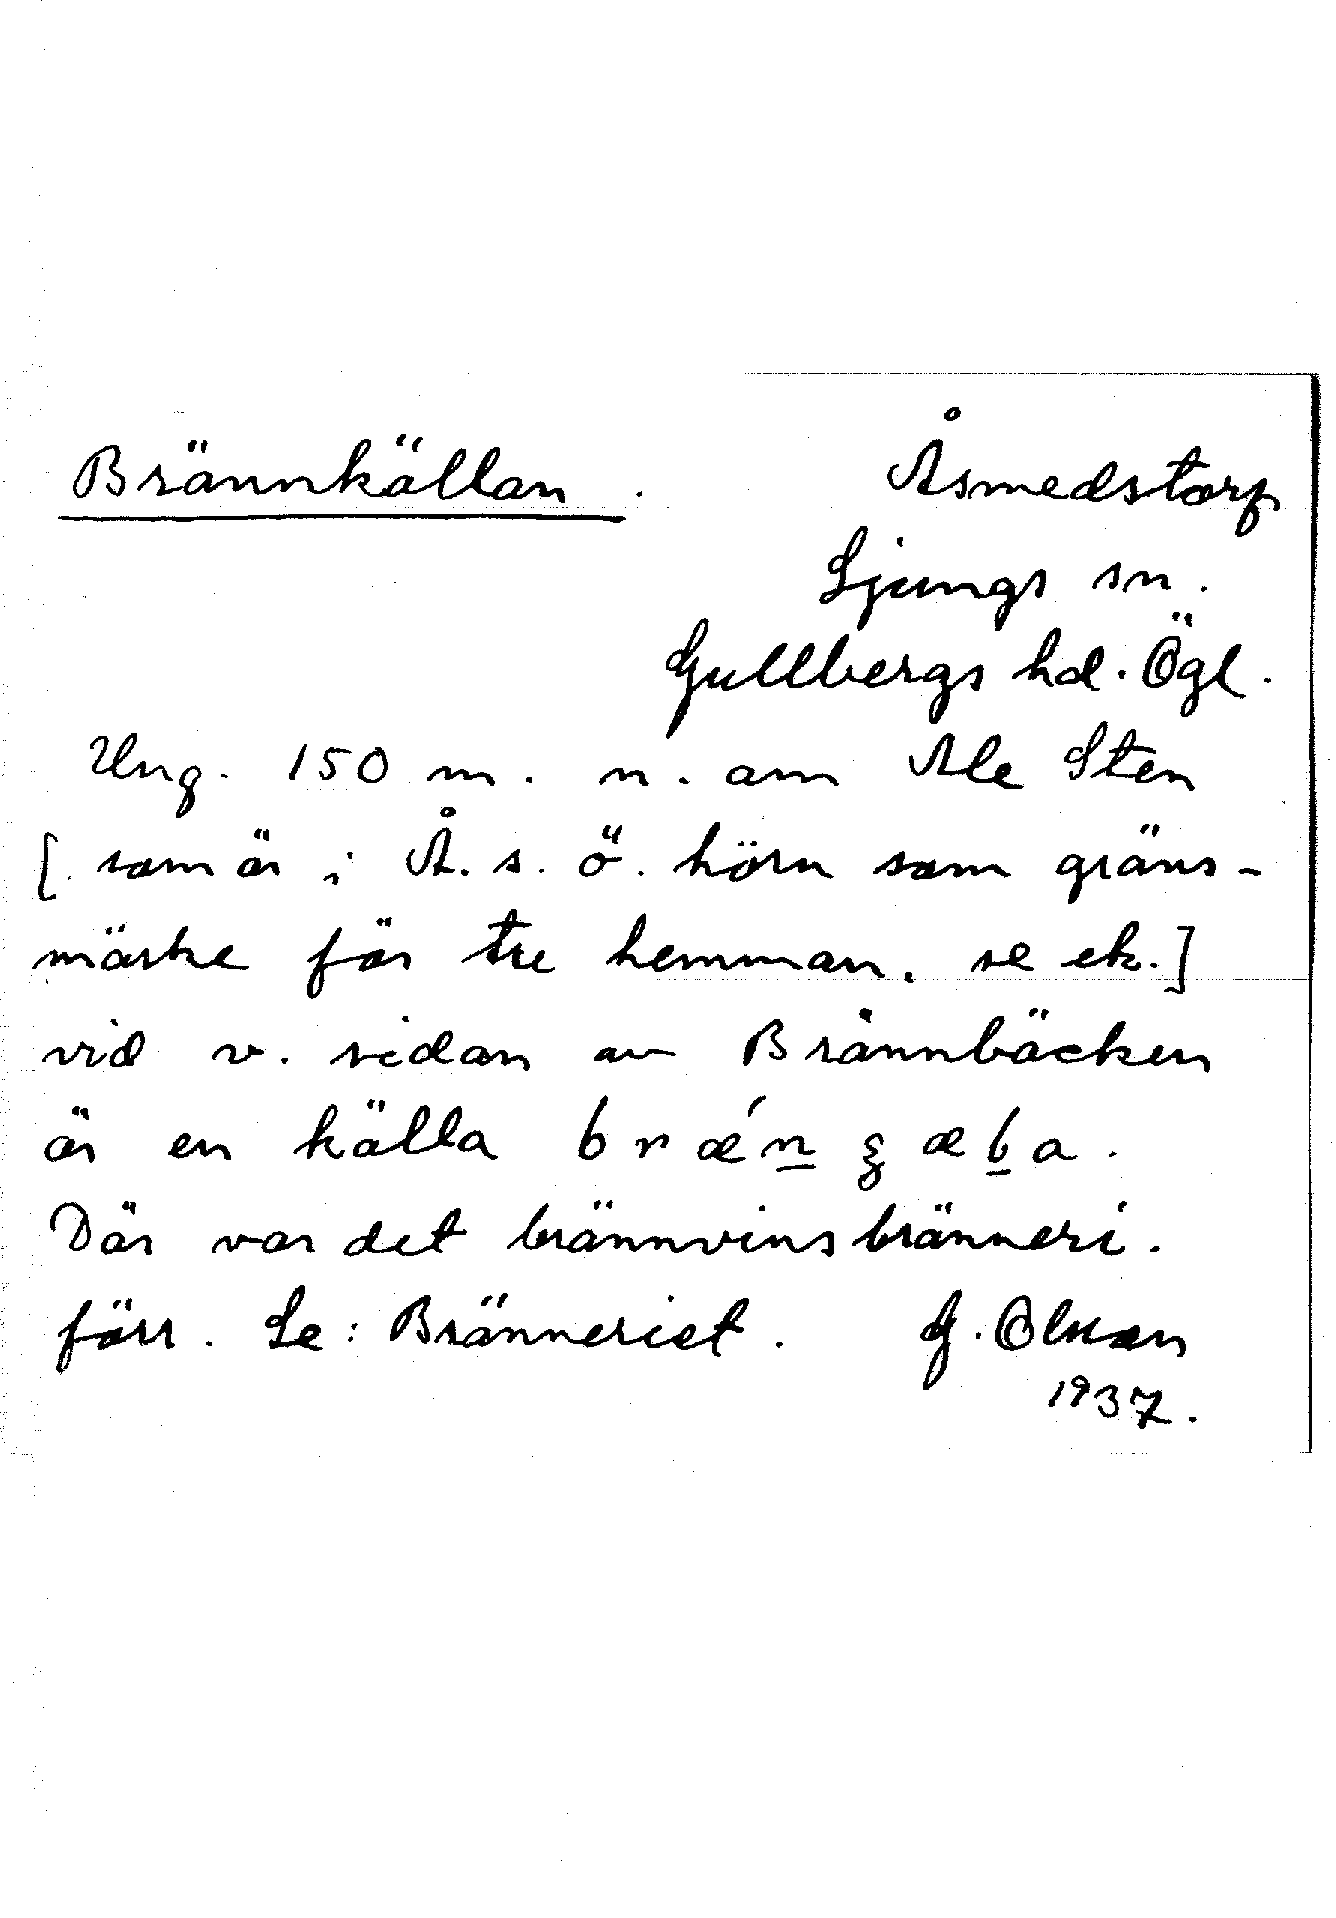 Brännkällan . Åsmedstorp
Ljungs sn.
Gullbergs hd. Ögl.
Ung. 150 m. n. om Ale Sten
[som är i Å. s. ö. hörn som gräns-
märke för tre hemman. se ek.]
vid v. sidan av Brännbäcken
är en källa
Där var det brännvinsbränneri.
förr. Se: Bränneriet. G. Olson
1937.